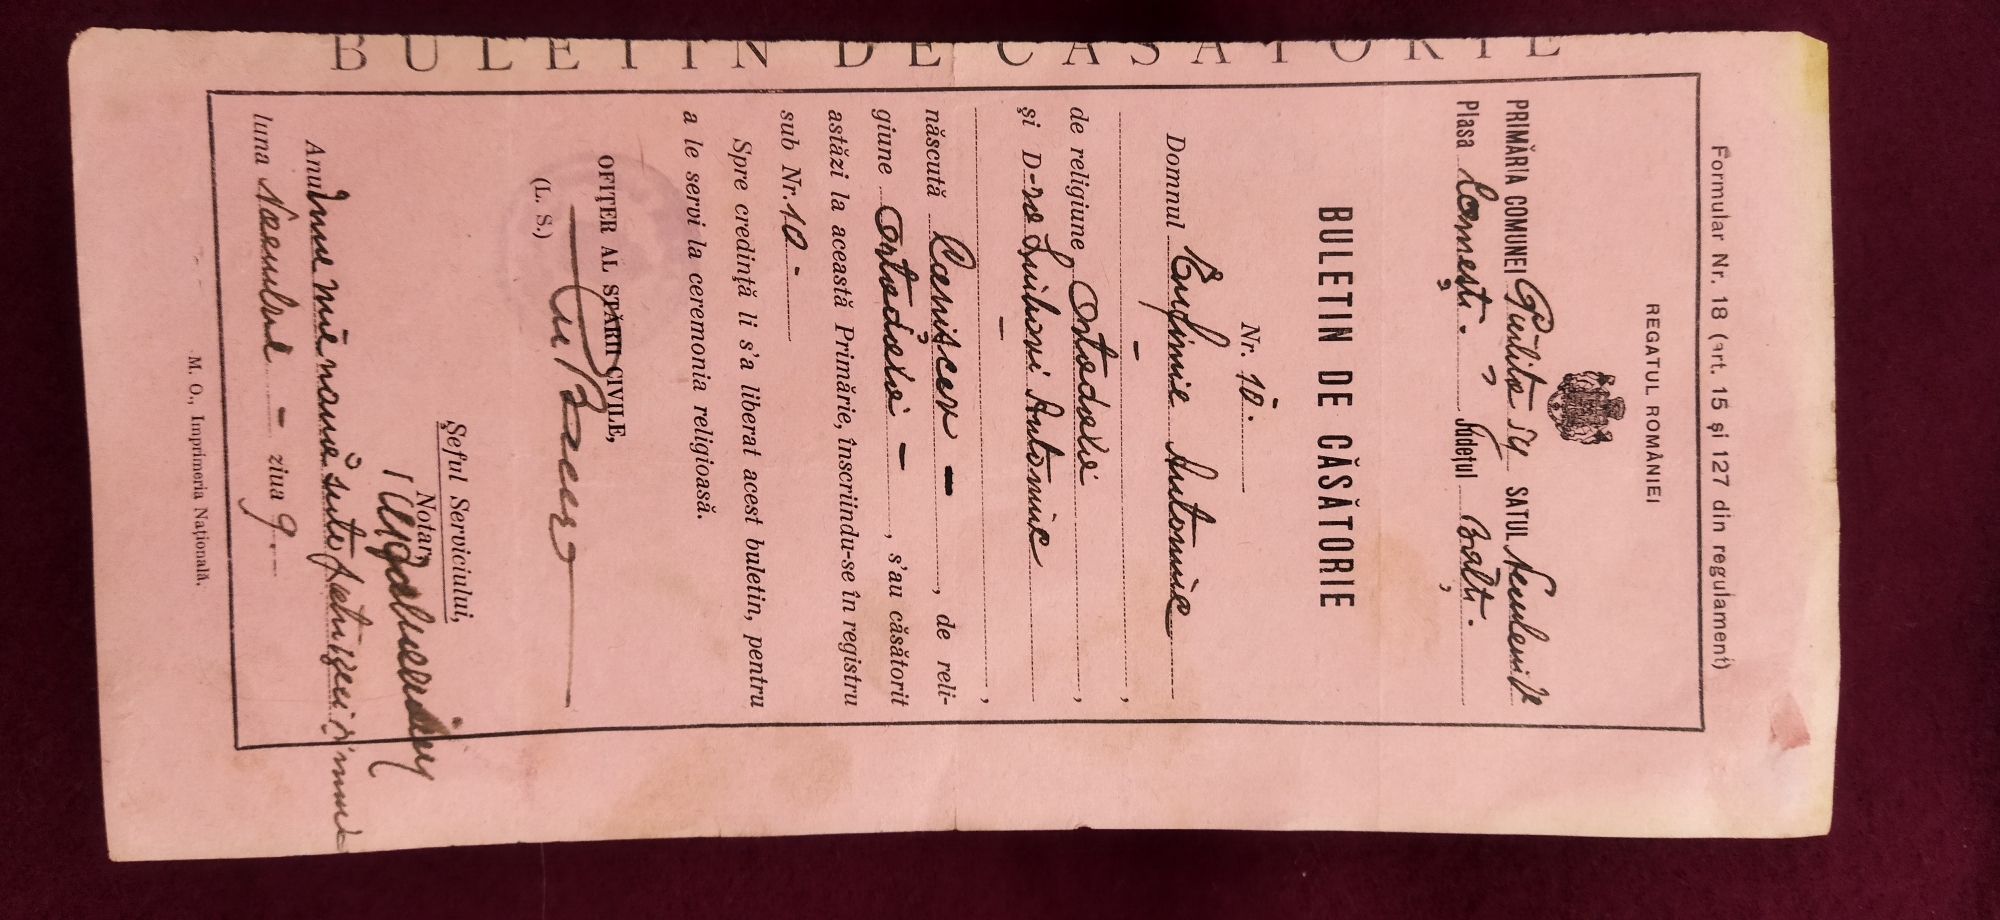 BULETIN DE CĂSĂTORIE
Formular Nr. 18 (art. 15 și 127 din regulament)
REGATUL ROMÂNIEI
PRIMĂRIA COMUNEI SATUL
Plasa Cornești. Județul Bălți.
BULETIN DE CĂSĂTORIE
Nr. 10.
Domnul Eufimie Antoniuc
- ,
de religiune Ortodoxă ,
și D-ra Antoniuc
- ,
născută - , de reli-
giune Ortodoxă - , s'au căsătorit
astăzi la această Primărie, înscriindu-se în registru
sub Nr. 10 -
Spre credință li s'a liberat acest buletin, pentru
a le servi la ceremonia religioasă.
OFIȚER AL STĂRII CIVILE,
(L. S.)
Șeful Serviciului,
Notar,
Anul Una mie nouă sute patruzeci și
luna Noembrie - ziua 9.
M. O., Imprimeria Națională.